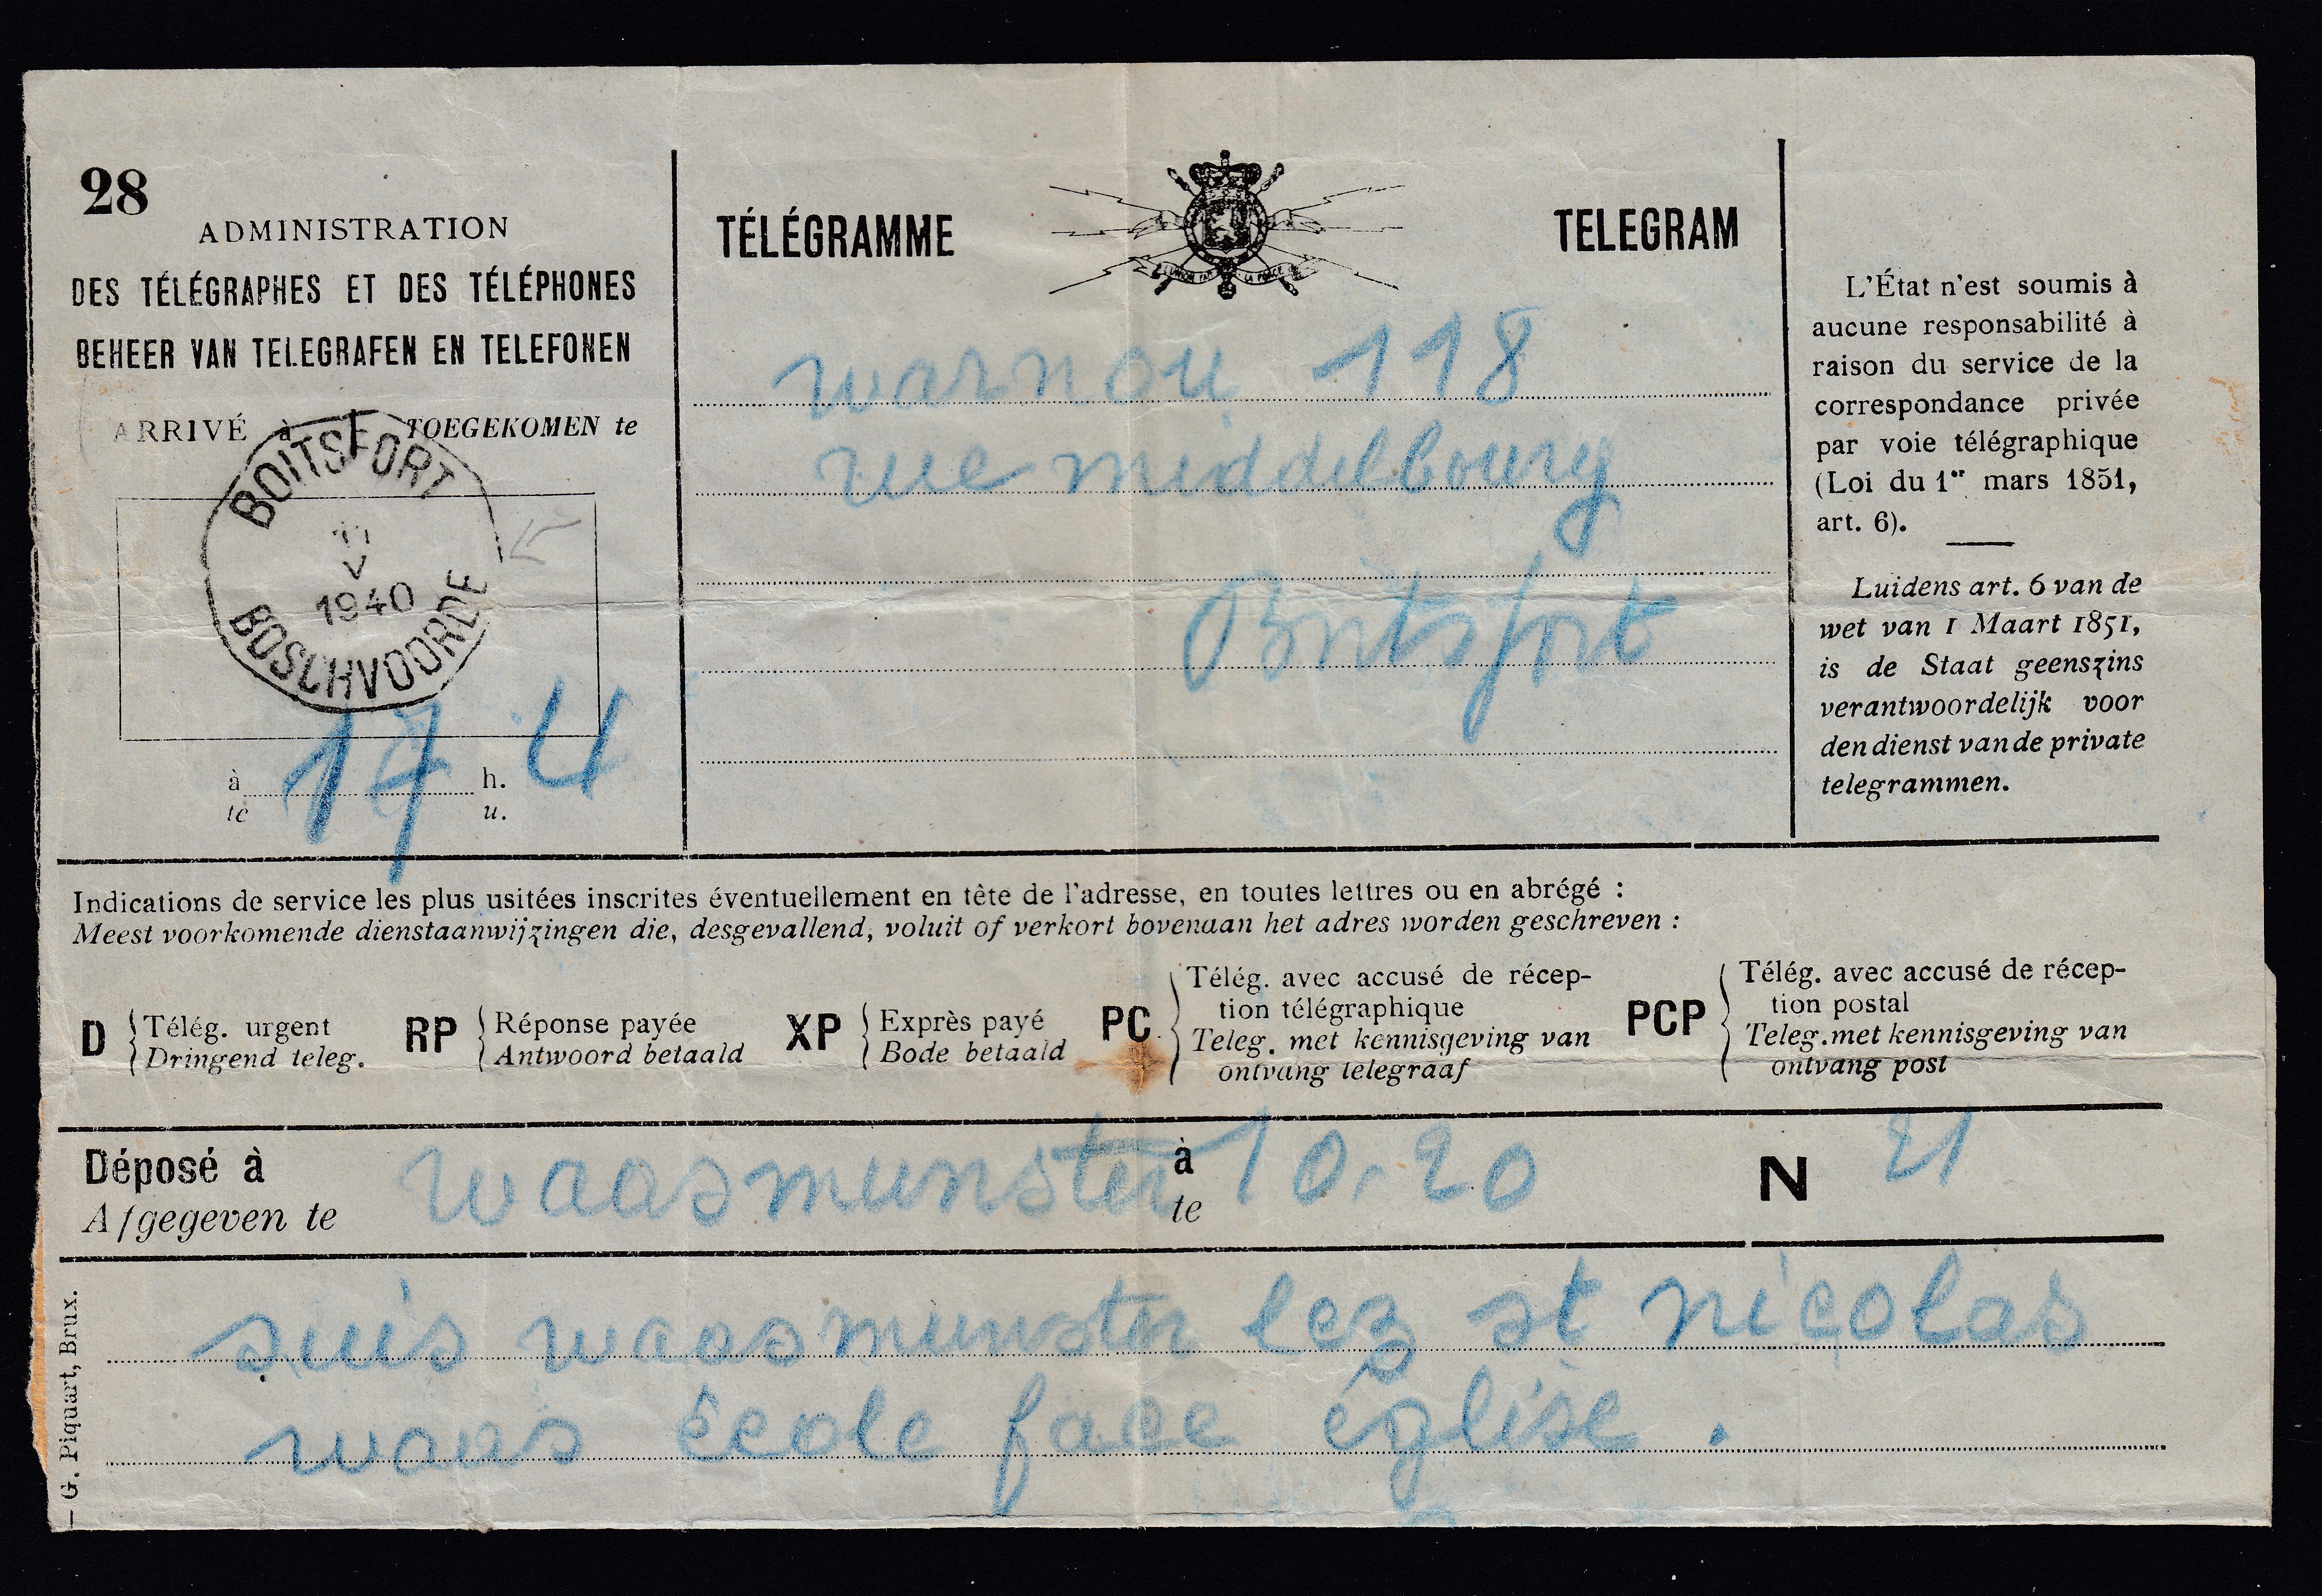 28
ADMINISTRATION
DES TÉLÉGRAPHES ET DES TÉLÉPHONES
BEHEER VAN TELEGRAFEN EN TELEFONEN
ARRIVÉ à TOEGEKOMEN te
BOITSFORT
V
1940
BOSCHVOORDE
à 17 h. 4
te u.
TÉLÉGRAMME TELEGRAM
L'UNION FAIT LA FORCE
warnou 118
rue middelbourg
Boitsfort
L'État n'est soumis à
aucune responsabilité à
raison du service de la
correspondance privée
par voie télégraphique
(Loi du 1er mars 1851,
art. 6).
Luidens art. 6 van de
wet van 1 Maart 1851,
is de Staat geenszins
verantwoordelijk voor
den dienst van de private
telegrammen.
Indications de service les plus usitées inscrites éventuellement en tête de l'adresse, en toutes lettres ou en abrégé :
Meest voorkomende dienstaanwijzingen die, desgevallend, voluit of verkort bovenaan het adres worden geschreven :
D Télég. urgent
Dringend teleg.
RP Réponse payée
Antwoord betaald
XP Exprès payé
Bode betaald
PC Télég. avec accusé de récep-
tion télégraphique
Teleg. met kennisgeving van
ontvang telegraaf
PCP Télég. avec accusé de récep-
tion postal
Teleg. met kennisgeving van
ontvang post
Déposé à waasmunster à 10.20 N 21
Afgegeven te te
suis waasmunster lez st nicolas
waas école face église .
— G. Piquart, Brux.